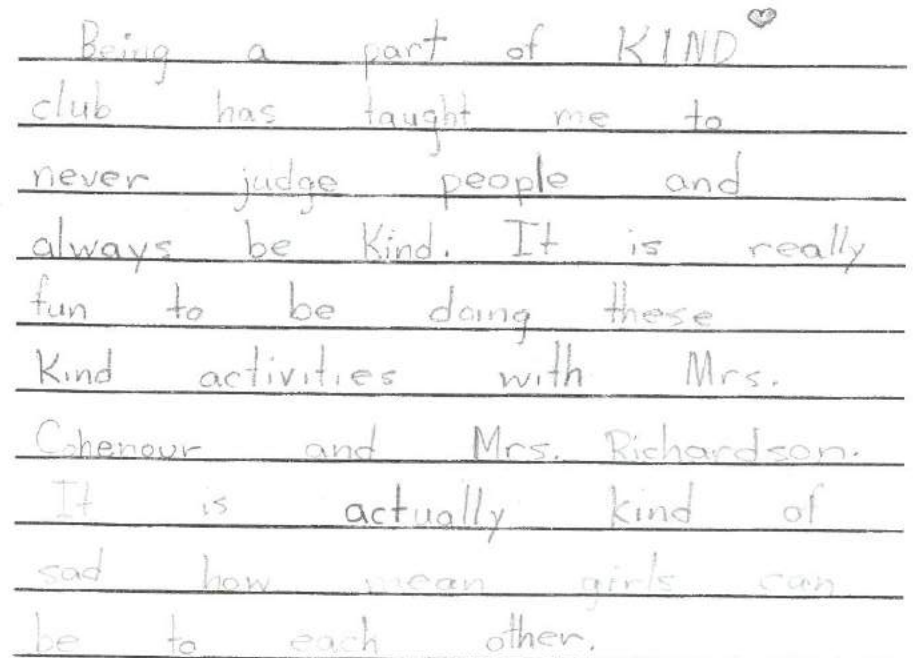 Being a part of KIND
club has taught me to
never judge people and
always be kind. It is really
fun to be doing these
kind activities with Mrs.
Cohenour and Mrs. Richardson.
It is actually kind of
sad how mean girls can
be to each other.